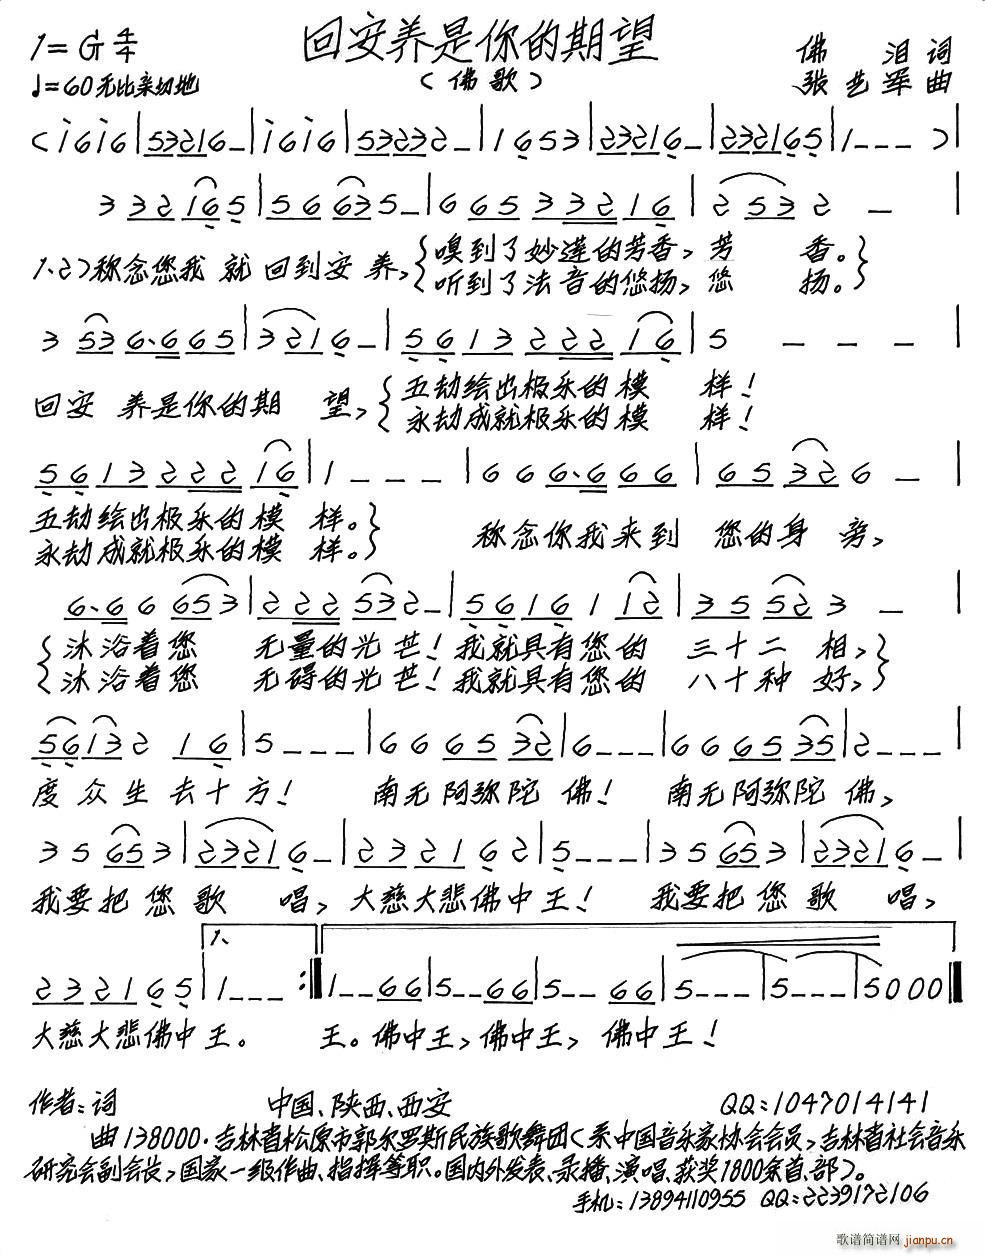 回安养是你的期望
1=G 4/4
♩=60无比亲切地
（佛歌）
佛 泪 词
张艺军 曲
(i6i6|53216-|i6i6|53232-|1653|23216-|232165|1---)|
332165|56635-|665332216|2532-|
1.2)称念您我 就 回到安养,{嗅到了妙莲的芳香,芳 香。}
听到了法音的悠扬,悠 扬。}
3536.665|3216-|561322216|5---|
回安 养是你的期 望,{五劫绘出极乐的模 样!
永劫成就极乐的模 样!
561322216|1---|666.666|65326-|
五劫绘出极乐的模 样。}
永劫成就极乐的模 样。}
称念你我来到 您的身 旁,
6.66653|222532-|5616112|355523-|
{沐浴着您 无量的光芒!我就具有您的 三十二 相,}
{沐浴着您 无碍的光芒!我就具有您的 八十种 好,}
5613216|5---|666532|6---|666535|2---|
度众生去十方! 南无阿弥陀 佛! 南无阿弥陀 佛,
35653|23216-|232162|5---|35653|23216-|
我要把您歌 唱,大慈大悲佛中王! 我要把您歌 唱,
1.
232165|1---:‖1--66|5--66|5--66|5---|5---|5000‖
大慈大悲佛中王。 王。佛中王,佛中王, 佛中王!
作者:词 中国、陕西、西安 QQ:1047014141
曲138000.吉林省松原市郭尔罗斯民族歌舞团(系中国音乐家协会会员,吉林省社会音乐
研究会副会长,国家一级作曲、指挥等职。国内外发表、录播、演唱、获奖1800余首、部)。
手机:13894110955 QQ:2239172106
歌谱简谱网 jianpu.cn